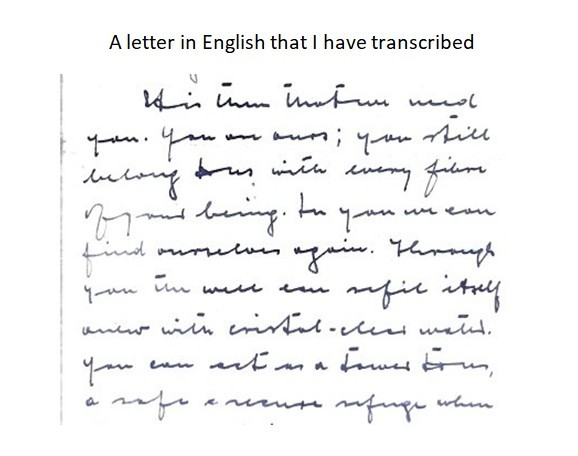 A letter in English that I have transcribed
It is then that we need
you. You are ours; you still
belong to us with every fibre
of your being. In you we can
find ourselves again. Through
you the well can refil itself
anew with cristal-clear water.
You can act as a tower to us,
a safe & secure refuge when